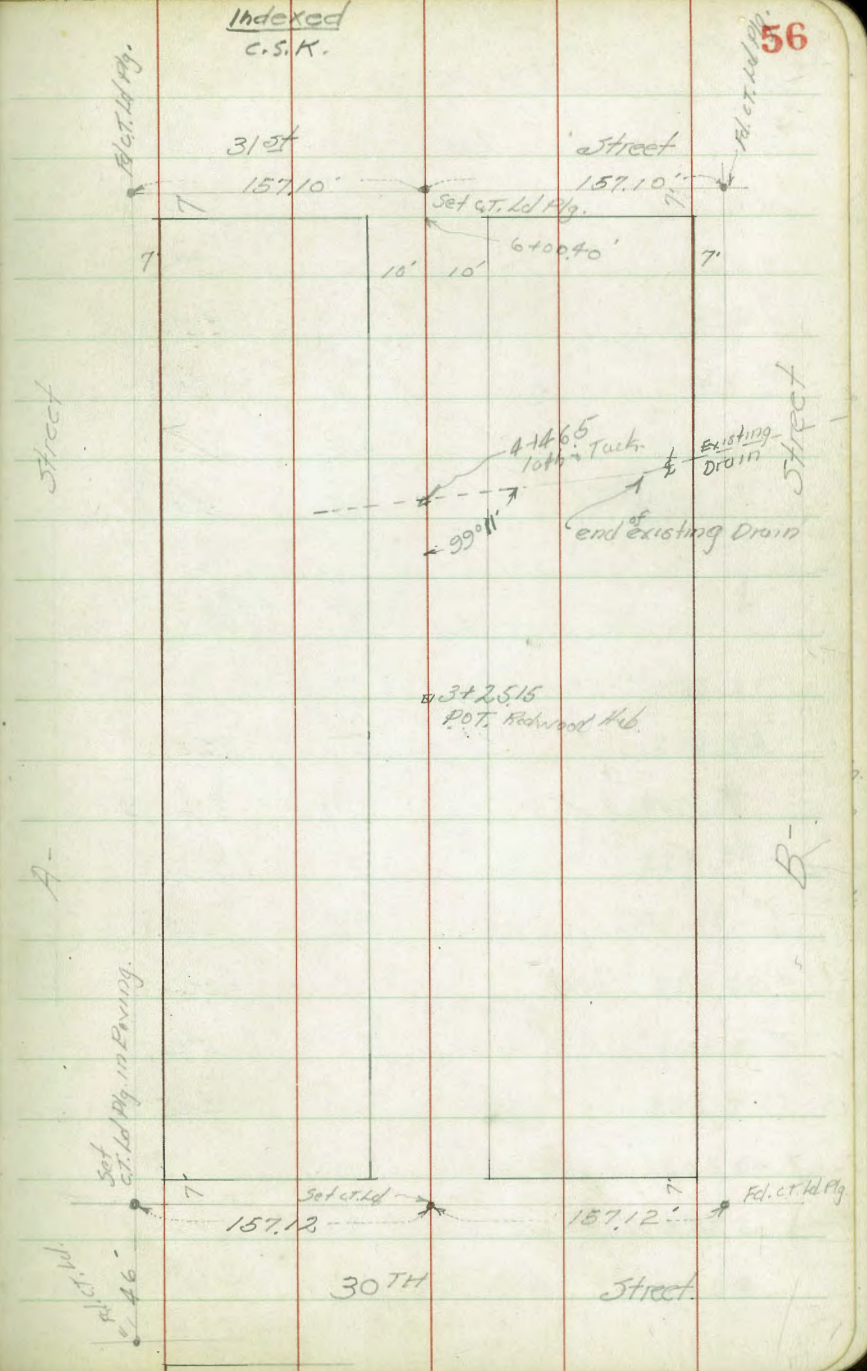 Indexed
C.S.K.
56
Fd. C.T. Ld Plg.
Fd. C.T. Ld Plg.
31st Street
157.10'
157.10'
Set C.T. Ld Plg.
7'
7'
6+00.40'
7'
10'
10'
7'
Street
Street
4+46.5
Existing
Drain
99°11'
end of existing Drain
3+25.15
P.O.T. Redwood Hub.
A-
B-
Set
C.T. Ld Plg. in Paving.
7'
Set C.T. Ld
7'
Fd. C.T. Ld Plg.
157.12
157.12'
Fd. C.T. Ld.
46'
30TH Street.